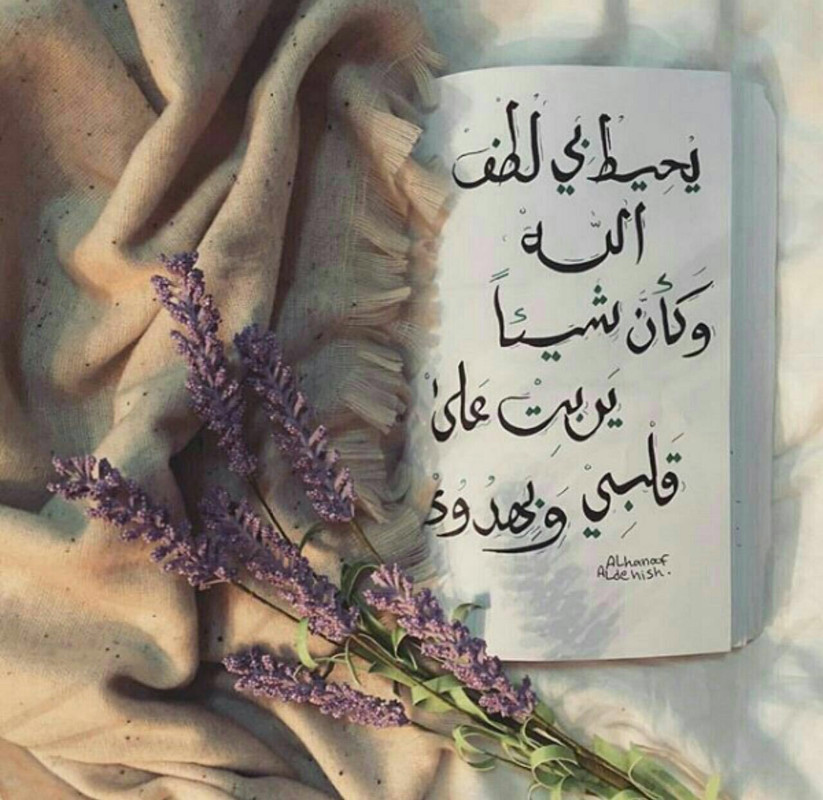 يحيط بي لطف
الله
وكأنَّ شيئاً
يَربتْ علىٰ
قَلبي وَبهدوء
ALhanoof
ALdehish.